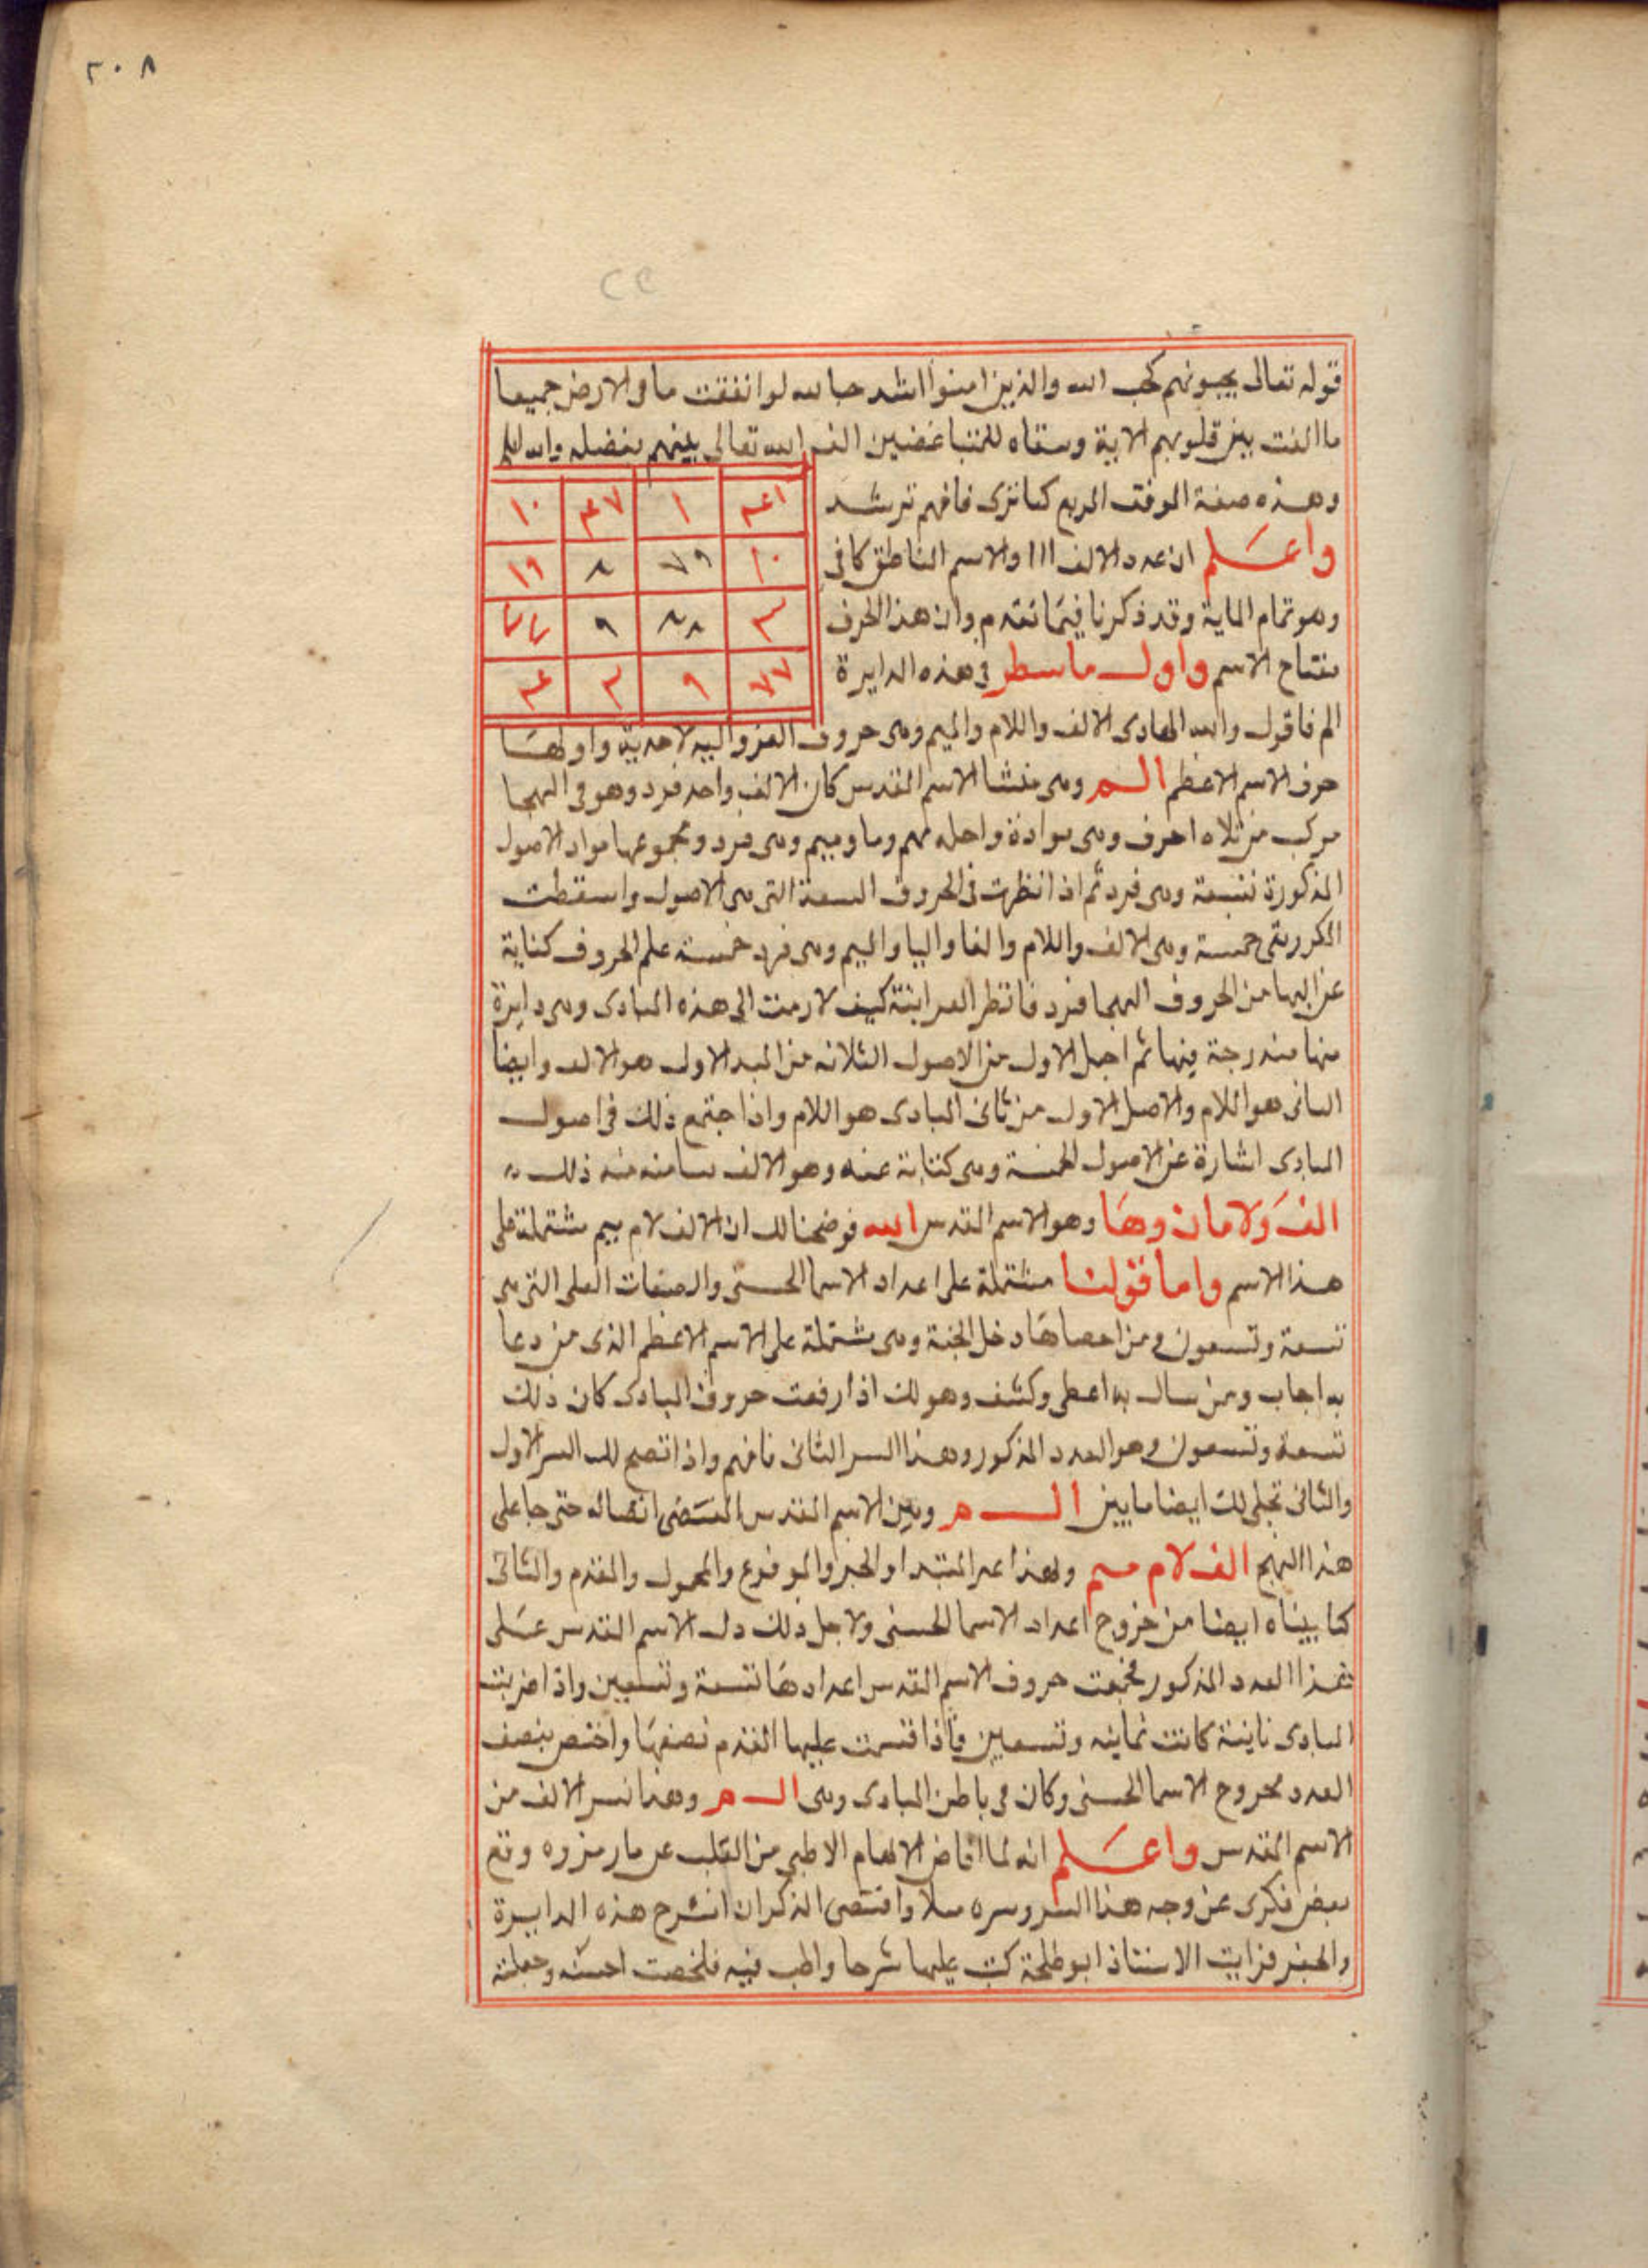 ٢٠٨
قوله تعالى يحبونهم كحب الله والذين امنوا اشد حبا لله لو انفقت ما فى الارض جميعا
ما الفت بين قلوبهم الاية وسقاه للمتباغضين الف الله تعالى بينهم بفضله والله اعلم
وهذه صفة الوفق المربع كما ترى فافهم ترشد
١ ١٠
١٠ ٧٩ ٨ ١٩
٣ ٨٨ ٩
٧٧ ٩ ٣
واعلم ان عدد الالف ااا والاسم الناطق كافى
وهو تمام الماية وقد ذكرنا فيما تقدم وان هذا الحرف
مفتاح الاسم واول ما سطر فى هذه الدايرة
الم فاقول والله الهادى الالف واللام والميم وهى حروف واولها
حرف الاسم الاعظم الم وهى منشا الاسم المقدس كان الالف واحد فرد وهو فى الهجا
مركب من ثلاه احرف وهى وميم وهى فرد ومجموعها مواد الاصول
المذكورة تسعة وهى فرد ثم اذا نظرت فى الحروف التسعة التى هى الاصول واسقطت
المكرر بقى خمسة وهى الالف واللام والفا واليا والميم وهى فرد خمسة علم الحروف كناية
من الحروف الهجا فرد فانظر كيف الى هذه المبادى وهى دايرة
منها مندرجة فيها ثم اجعل الاول من الاصول الثلاثه من المبدا الاول هو الالف وايضا
الثانى هو اللام والاصل الاول من ثانى المبادى هو اللام واذا اجتمع ذلك فى اصول
المبادى اشارة عن الاصول الخمسة وهى كناية عنه وهو الالف ذلك
الف ولامان وها وهو الاسم المقدس الله فوضحنا لك ان الالف لام ميم مشتملة على
هذا الاسم واما قولنا مشتملة على اعداد الاسما الحسنى والصفات العلى التى هى
تسعة وتسعون من احصاها دخل الجنة وهى مشتملة على الاسم الاعظم الذى من دعا
به اجاب ومن سال به اعطى وكشف وهو لك اذا رفعت حروف المبادى كان ذلك
تسعة وتسعون وهو العدد المذكور وهذا السر الثانى فافهم واذا اتضح لك السر الاول
والثانى تجلى لك ايضا ما بين الم وبين الاسم المقدس المقتضى اتصاله حتى جا على
هذا النهج الف لام ميم ولهذا المبتدا والخبر والموضوع والمحمول والمقدم والثانى
كما بيناه ايضا من خروج اعداد الاسما الحسنى ولاجل ذلك دل الاسم المقدس على
هذا العدد المذكور فجمعت حروف الاسم المقدس اعدادها تسعة وتسعين واذا ضربت
المبادى كانت ثمانيه وتسعين فاذا قسمت عليها نصفها واختص بنصف
العدد الاسما الحسنى وكان فى باطن المبادى وهى الم وهذا سر الالف من
الاسم المقدس واعلم انه لما افاض الالهام من القلب رمزوه وقع
بعض فكرى عن وجه هذا السر وسره واقتضى الذكر ان اشرح هذه الدايرة
فرايت الاستاذ ابو طلحة كتب عليها شرحا واطنب فيه فلخصت احسنه وجعلته